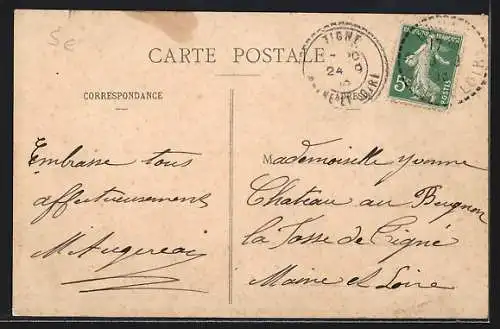 5e
CARTE POSTALE
TIGNÉ
24
MAINE-ET-LOIRE
5c
POSTES
LOIRE
CORRESPONDANCE
ADRESSE
Embrasse tous
affectueusement
M Augereau
Mademoiselle Yvonne
Chateau au Beugnon
la Fosse de Tigné
Maine et Loire